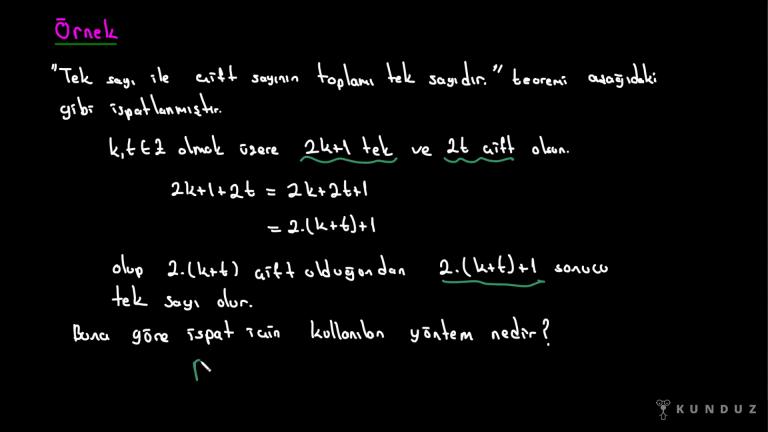 Örnek
"Tek sayı ile çift sayının toplamı tek sayıdır." teoremi aşağıdaki
gibi ispatlanmıştır.
k,t∈Z olmak üzere 2k+1 tek ve 2t çift olsun.
2k+1+2t = 2k+2t+1
= 2.(k+t)+1
olup 2.(k+t) çift olduğundan 2.(k+t)+1 sonucu
tek sayı olur.
Buna göre ispat için kullanılan yöntem nedir?
KUNDUZ